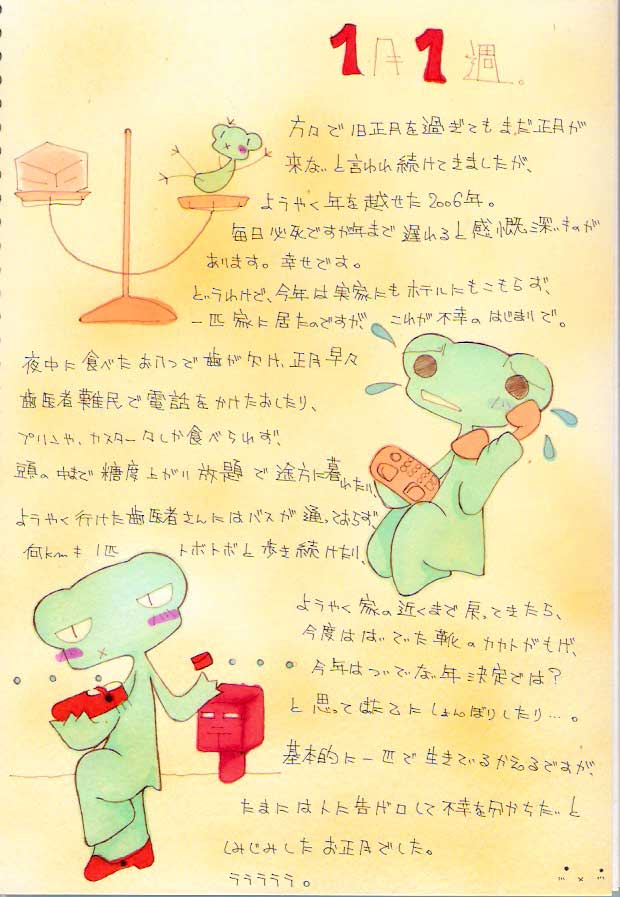 1月1週。
方々で旧正月を過ぎてもまだ正月が
来ないと言われ続けてきましたが、
ようやく年を越せた2006年。
毎日必死ですが年まで遅れると感慨深いものが
あります。幸せです。
というわけで、今年は実家にもホテルにもこもらず、
一匹家に居たのですが これが不幸のはじまりで。
夜中に食べたおやつで歯が欠け、正月早々
歯医者難民で電話をかけたおしたり、
プリンや、カスタードしか食べられず、
頭の中まで糖度上がり放題で途方に暮れたり、
ようやく行けた歯医者さんにはバスが通っておらず
何kmも1匹 トボトボと歩き続けたり、
ようやく家の近くまで戻ってきたら、
今度ははいでた靴のカカトがもげ、
今年はついてない年決定では?
と思ってはたてにしょんぼりしたり…。
基本的に一匹で生きているかえるですが、
たまには人に告ゲ口して不幸を分かちたいと
しみじみしたお正月でした。
ううううう。